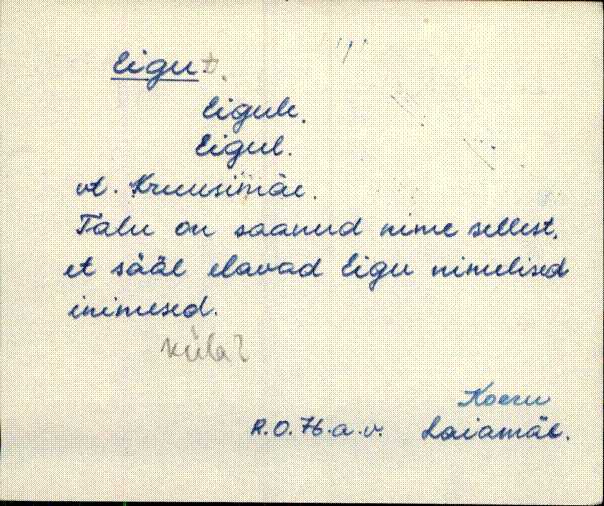 Eigu t.
Eigule.
Eigul.
vt. Kruusimäe.
Talu on saanud nime sellest,
et sääl elavad Eigu nimelised
inimesed.
küla?
Koeru
R.O. 76.a.v. Laiamäe.